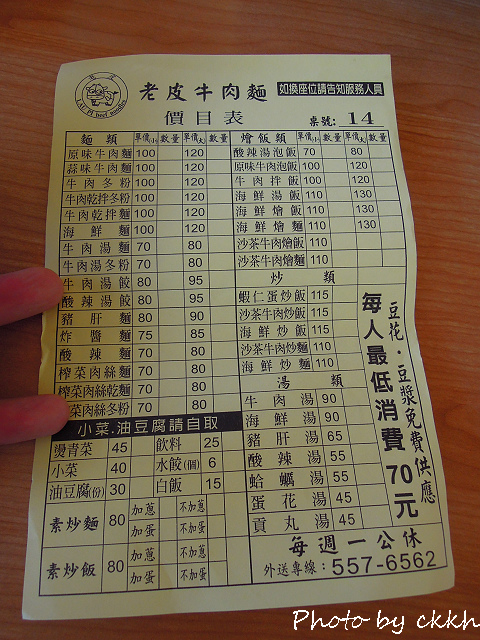 老皮
LAU PI beef noodles
老皮牛肉麵
如換座位請告知服務人員
價目表
桌號: 14
麵類 單價(小) 數量 單價(大) 數量
原味牛肉麵 100 120
蒜味牛肉麵 100 120
牛肉冬粉 100 120
牛肉乾拌冬粉 100 120
牛肉乾拌麵 100 120
海鮮麵 100 120
牛肉湯麵 70 80
牛肉湯冬粉 70 80
牛肉湯餃 80 95
酸辣湯餃 80 95
豬肝麵 80 90
炸醬麵 75 85
酸辣麵 70 80
榨菜肉絲麵 70 80
榨菜肉絲乾麵 70 80
菜肉絲冬粉 70 80
小菜.油豆腐請自取
燙青菜 45 飲料 25
小菜 40 水餃(個) 6
油豆腐(份) 30 白飯 15
素炒麵 80 加蔥 不加蔥
加蛋 不加蛋
素炒飯 80 加蔥 不加蔥
加蛋 不加蛋
燴飯類 單價(小) 數量 單價(大) 數量
酸辣湯泡飯 70 80
原味牛肉泡飯 100 120
牛肉拌飯 100 120
海鮮湯飯 110 130
海鮮燴飯 110 130
海鮮燴麵 110 130
沙茶牛肉燴飯 110
沙茶牛肉燴麵 110
炒類
蝦仁蛋炒飯 115
沙茶牛肉炒飯 115
海鮮炒飯 115
沙茶牛肉炒麵 115
海鮮炒麵 115
湯類
牛肉湯 90
海鮮湯 90
豬肝湯 65
酸辣湯 55
蛤蠣湯 55
蛋花湯 45
貢丸湯 45
豆花.豆漿免費供應
每人最低消費70元
每週一公休
外送專線: 557-6562
Photo by ckkh